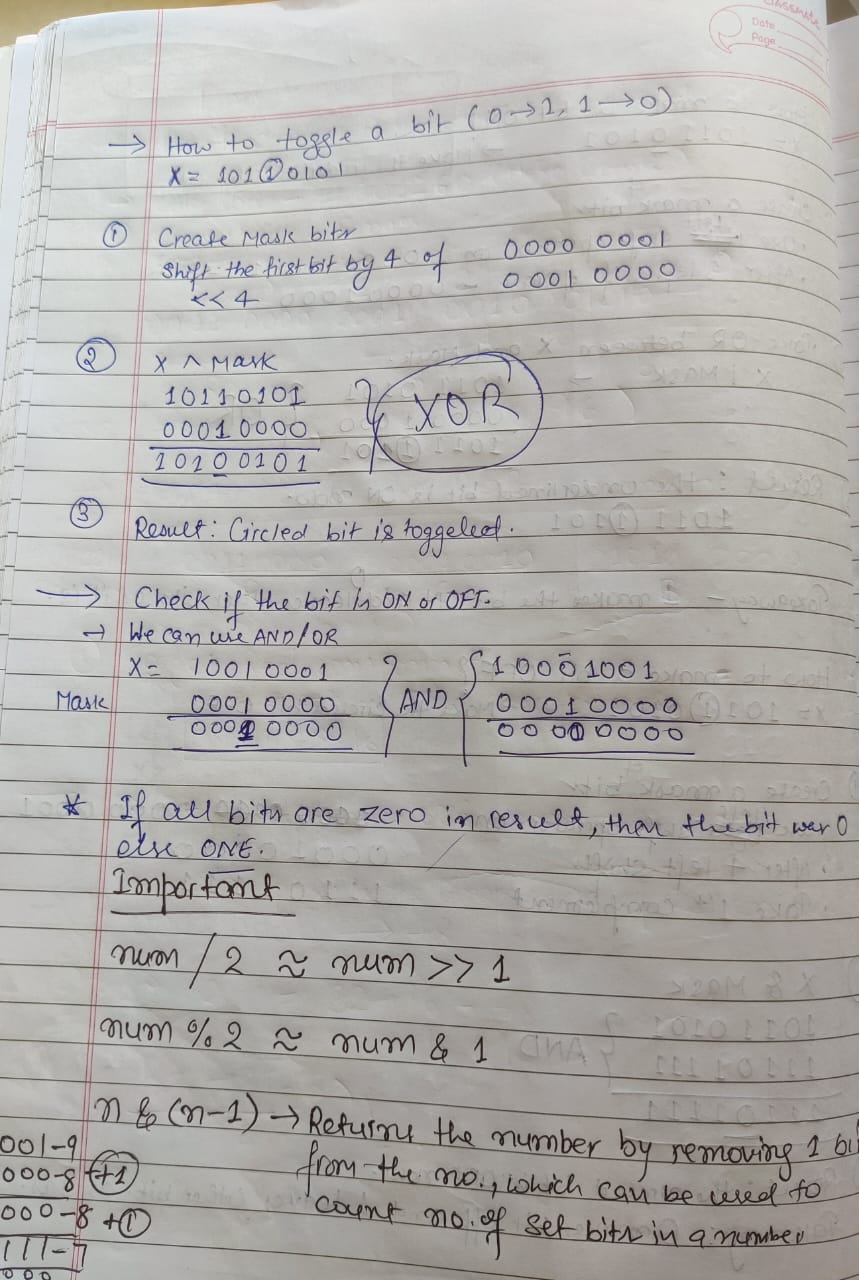 classmate
Date
Page
→ How to toggle a bit (0→1, 1→0)
X = 101①0101
① Create Mask bits
Shift the first bit by 4 of 0000 0001
<< 4 0001 0000
② X ^ Mask
10110101
00010000
10100101
XOR
③ Result: Circled bit is toggeled.
→ Check if the bit is ON or OFF.
→ We can use AND/OR
X = 10010001 } AND { 10001001
Mask 00010000 00010000
00010000 00000000
* If all bits are zero in result, then the bit was 0
else ONE.
Important
num / 2 ≈ num >> 1
num % 2 ≈ num & 1
n & (n-1) → Returns the number by removing 1 bi
from the no., which can be used to
count no. of set bits in a number
001-9
000-8 +1
000-8 +1
111-7
000